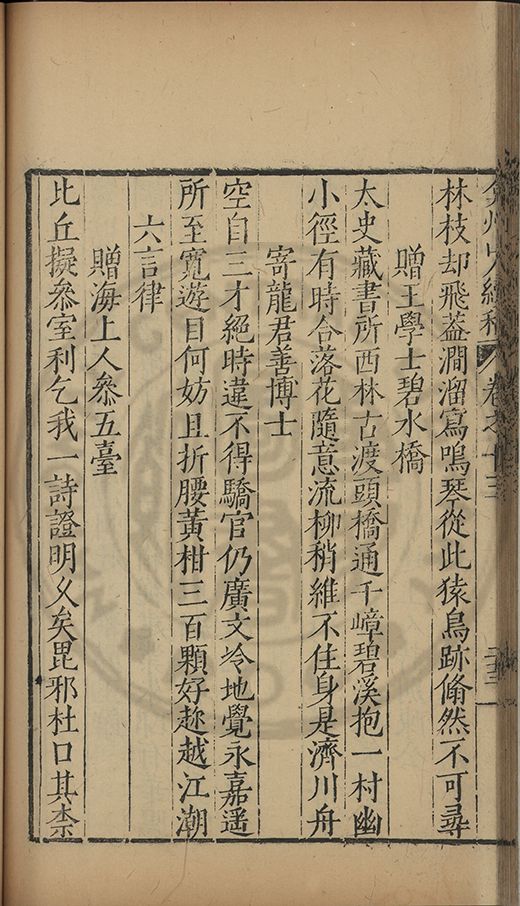 弇州山人續稿 卷之十三
林枝却飛葢澗溜寫鳴琴從此猿鳥跡翛然不可尋
贈王學士碧水橋
太史藏書所西林古渡頭橋通千嶂碧溪抱一村幽
小徑有時合落花隨意流柳稍維不住身是濟川舟
寄龍君善博士
空自三才絕時違不得驕官仍廣文冷地覺永嘉遥
所至寬遊目何妨且折腰黃柑三百顆好趂越江潮
六言律
贈海上人叅五臺
比丘擬叅室利乞我一詩證明乆矣毘邪杜口其柰